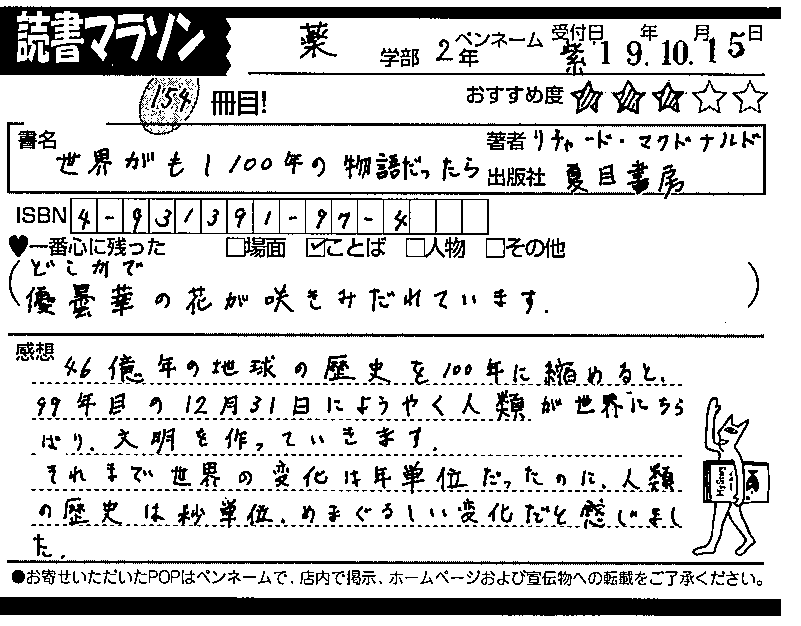 読書マラソン
薬 学部 2年 ペンネーム 紫 受付日 19年10月15日
154 冊目! おすすめ度 ★★★☆☆
書名 世界がもし100年の物語だったら
著者 リチャード・マクドナルド
出版社 夏目書房
ISBN 4-931391-97-4
♥一番心に残った □場面 ☑ことば □人物 □その他
(どこかで
優曇華の花が咲きみだれています.)
感想 46億年の地球の歴史を100年に縮めると、
99年目の12月31日にようやく人類が世界にちら
ばり、文明を作っていきます.
それまで世界の変化は年単位だったのに、人類
の歴史は秒単位、めまぐるしい変化だと感じまし
た.
●お寄せいただいたPOPはペンネームで、店内で掲示、ホームページおよび宣伝物への転載をご了承ください。